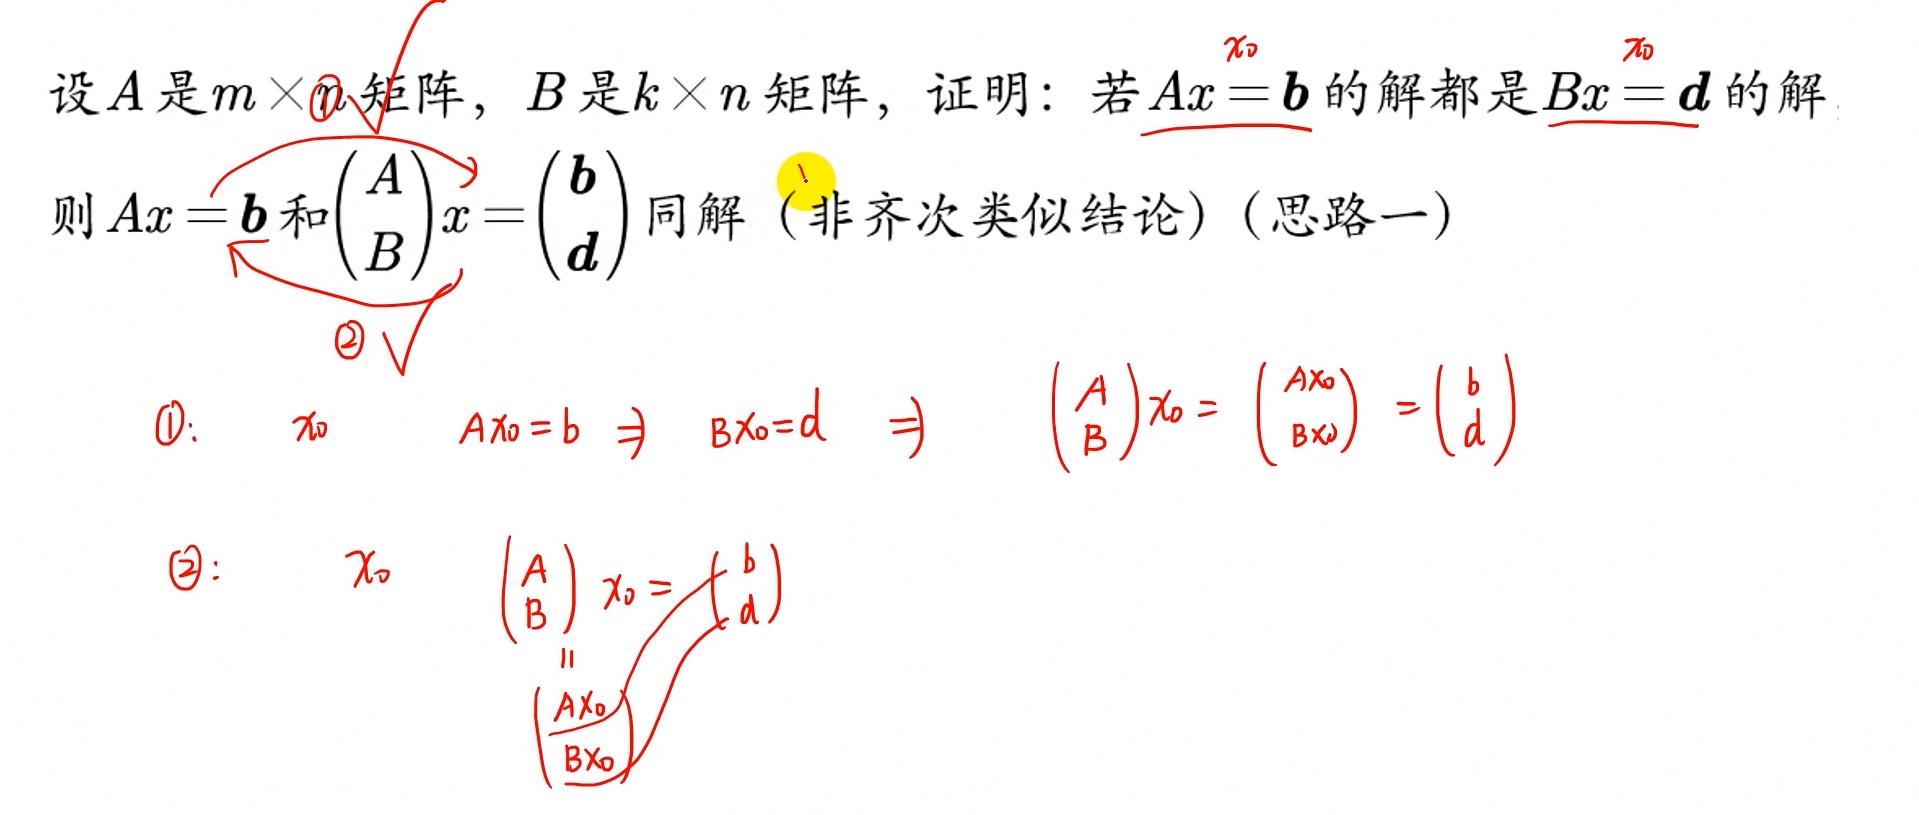 设A是m×n矩阵，B是k×n矩阵，证明：若Ax=b的解都是Bx=d的解
则Ax=b和(A B)x=(b d)同解（非齐次类似结论）（思路一）
x₀ x₀
① ✓
② ✓
①: x₀ Ax₀=b ⇒ Bx₀=d ⇒ (A B)x₀=(Ax₀ Bx₀)=(b d)
②: x₀ (A B)x₀=(b d)
=
(Ax₀ Bx₀)